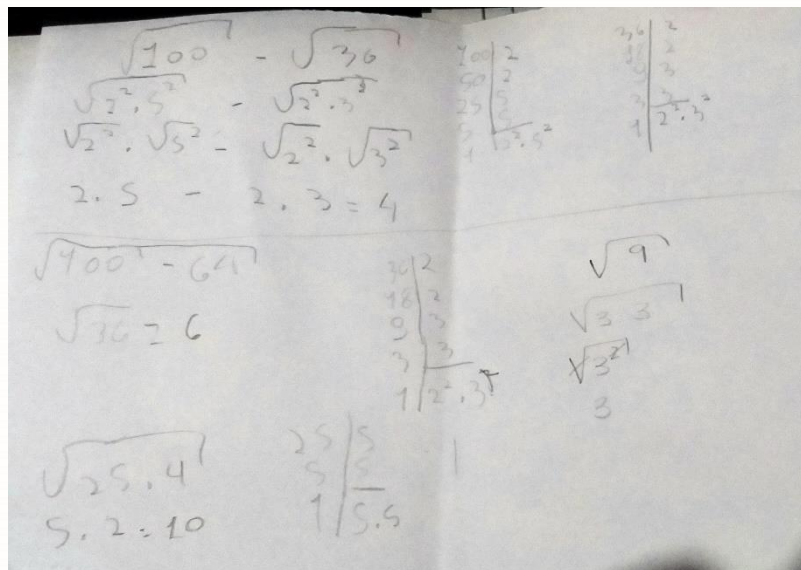 √100 - √36
√2².5² - √2².3²
√2² . √5² - √2² . √3²
2.5 - 2.3=4
100|2
50|2
25|5
5|5
1|2².5²
36|2
18|2
9|3
3|3
1|2².3²
√100 - 64
√36 = 6
36|2
18|2
9|3
3|3
1|2².3²
√9
√3 3
√3²
3
√25.4
5.2=10
25|5
5|5
1|5.5